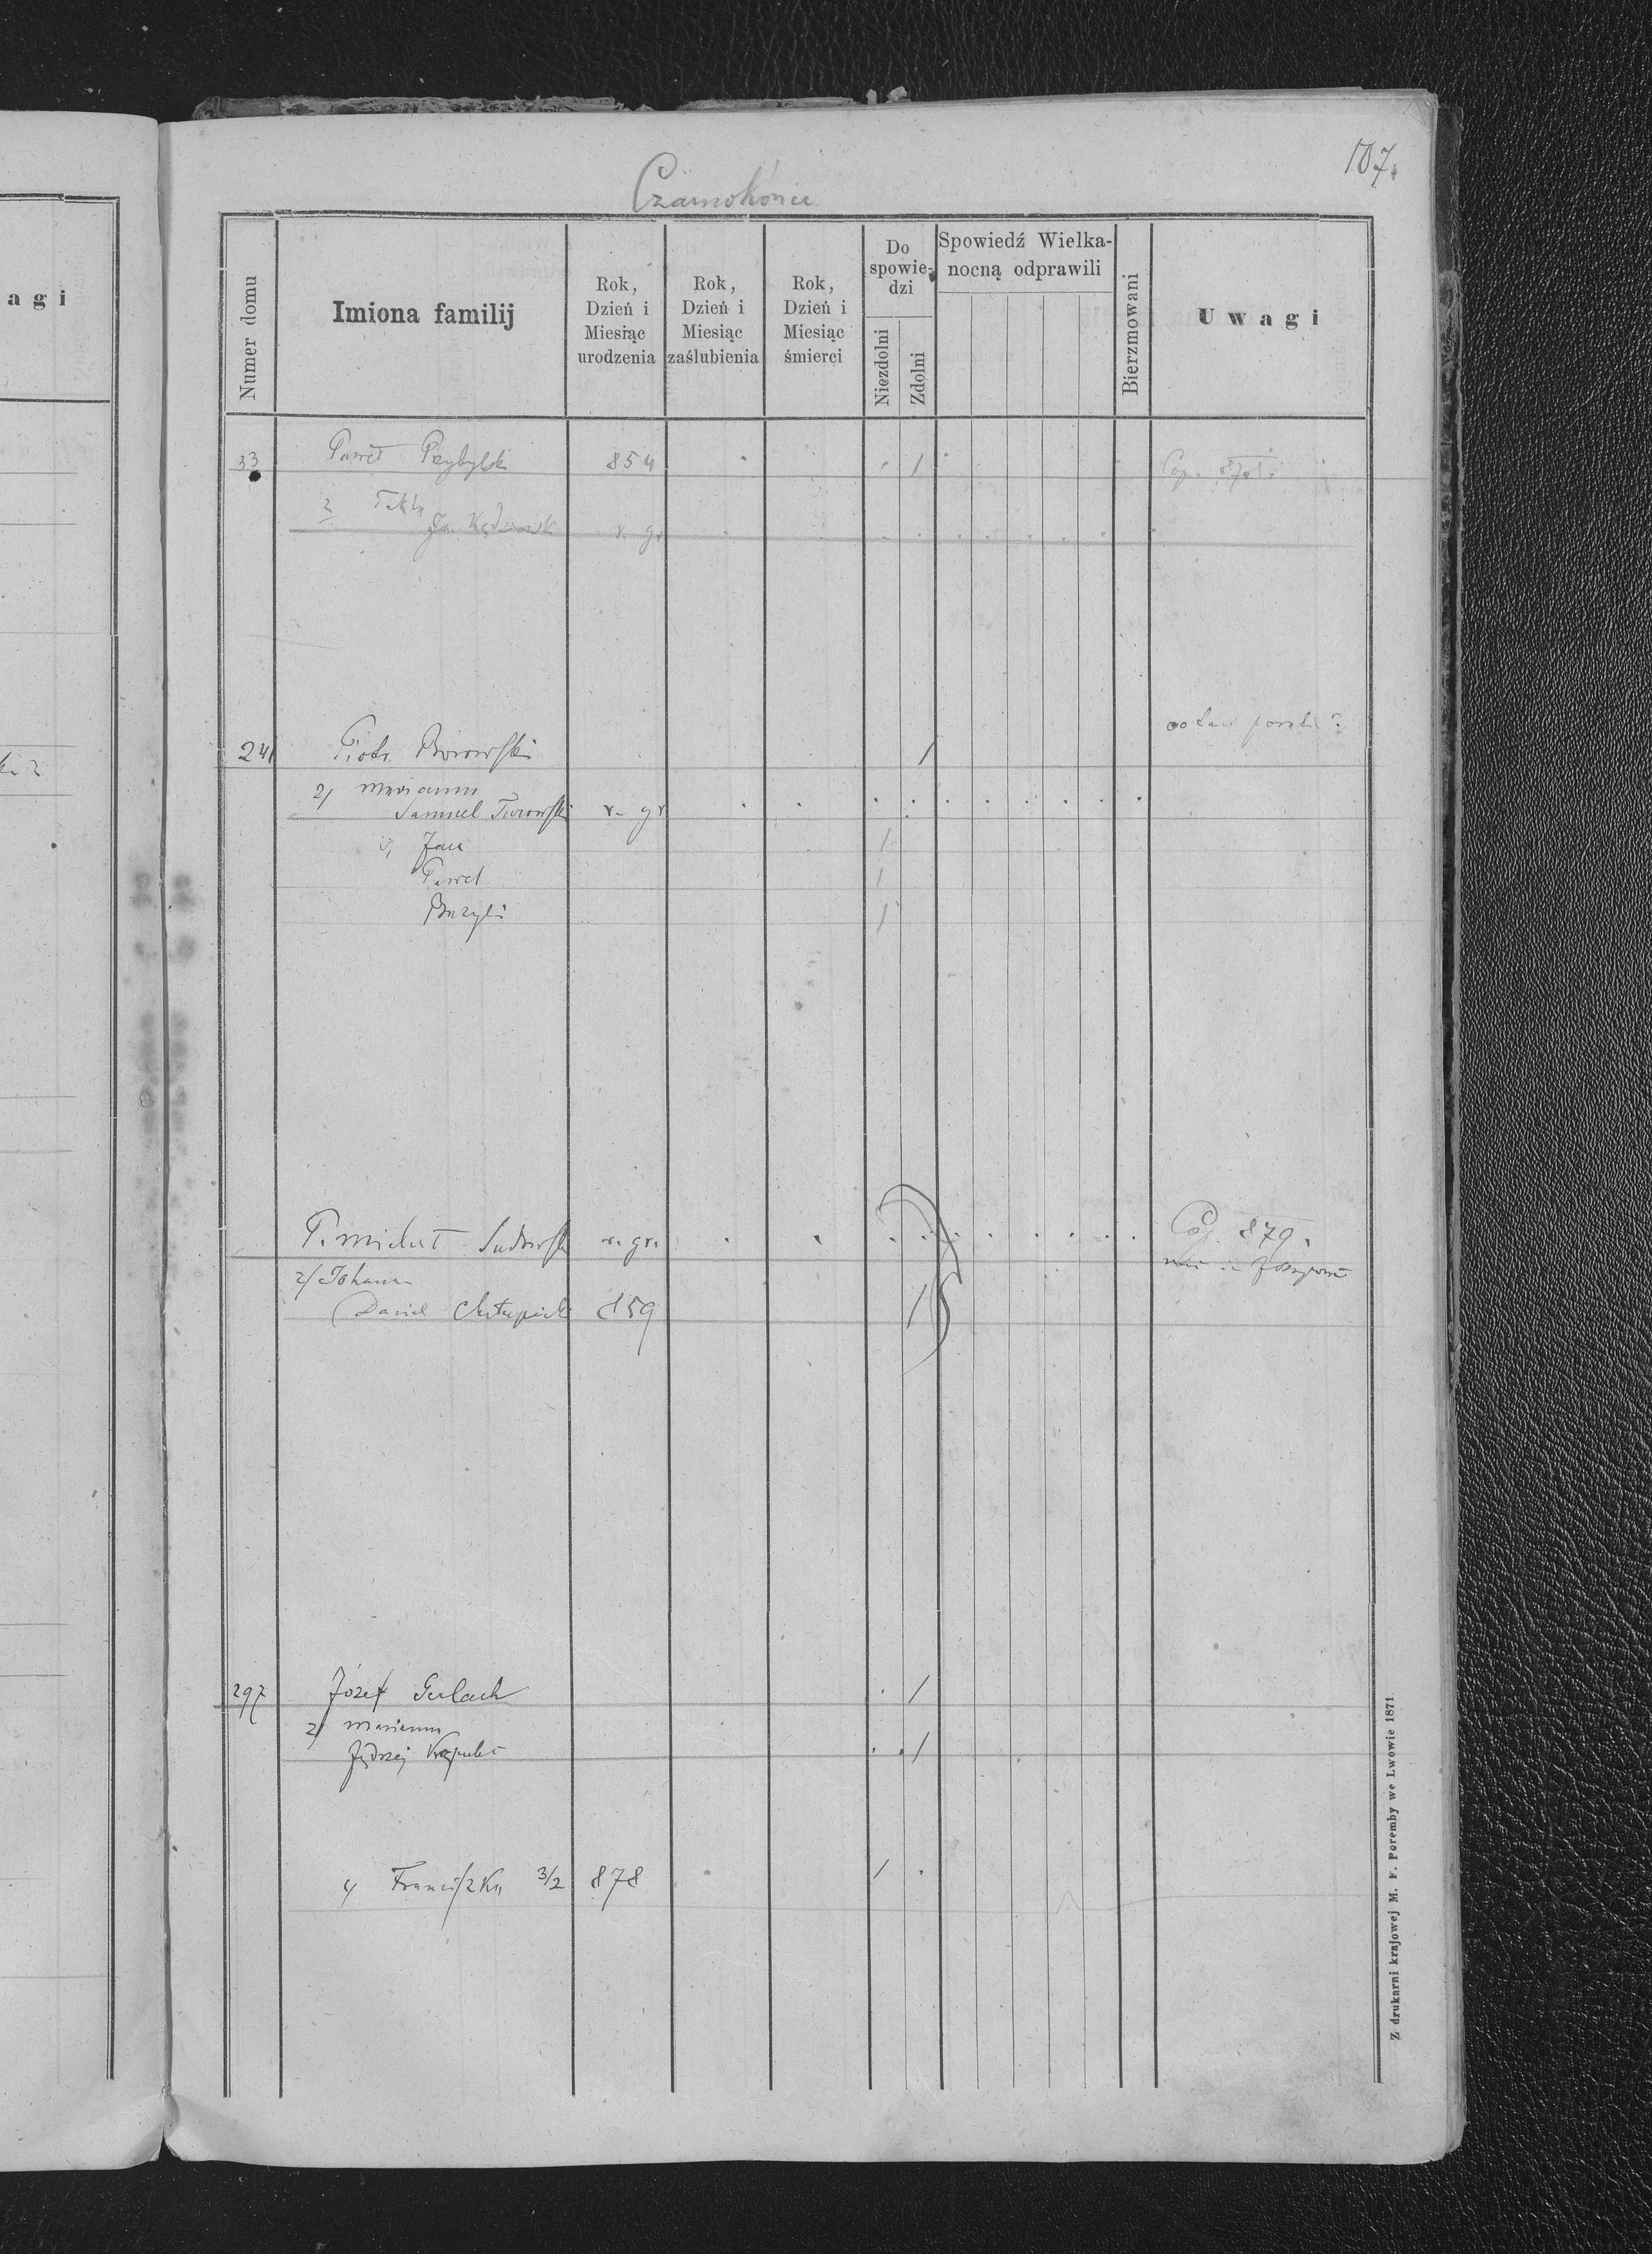 107.
Czarnokońce
agi
Numer domu
Imiona familij
Rok, Dzień i Miesiąc urodzenia
Rok, Dzień i Miesiąc zaślubienia
Rok, Dzień i Miesiąc śmierci
Do spowiedzi
Niezdolni
Zdolni
Spowiedź Wielkanocną odprawili
Bierzmowani
Uwagi
33 Paweł Przybylski 854 . . 1 Cop. 878.
2 Tekla
r. gr
241 Piotr Borowski 1
2/ Marianna
Samuel Turowski r. gr
3, Jan 1
Paweł 1
Bazyli 1
P. Michał Sudowski r. gr. Cop. 879.
2/ Johanna
Daniel 859 1
297 Józef Gerlach . 1
2/ Marianna
Jędrzej . . 1
4 Franciszka 3/2 878 1 .
Z drukarni krajowej M. F. Poremby we Lwowie 1871